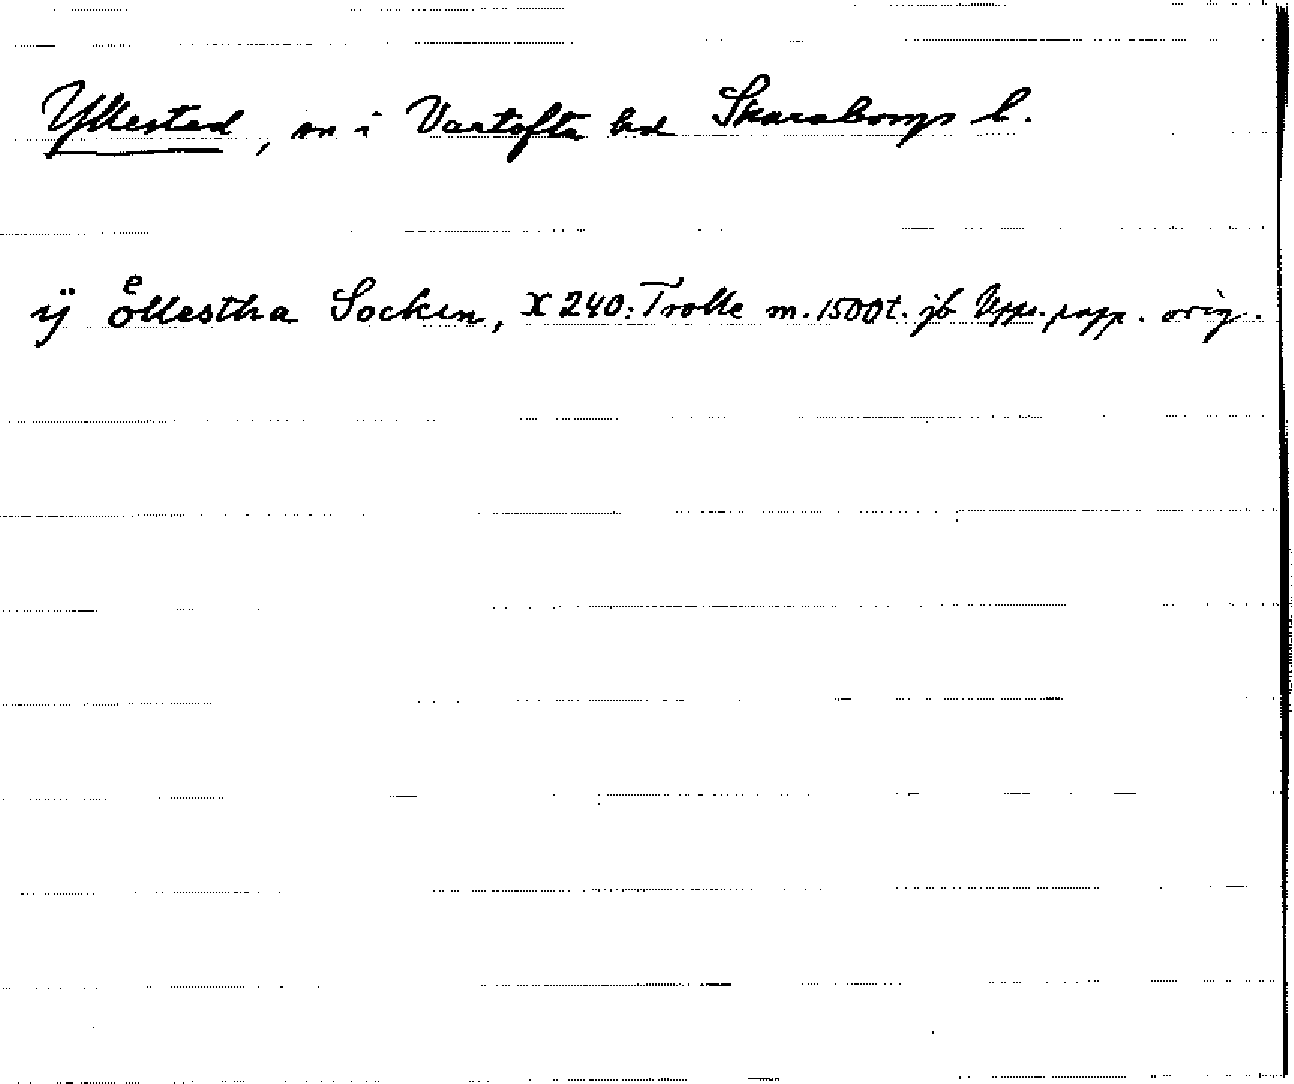 Yllestad, sn i Vartofta hd Skaraborgs l.
ÿ oͤllestha Socken, X 240: Trolle m. 1500t. jb Upps. papp. orig.